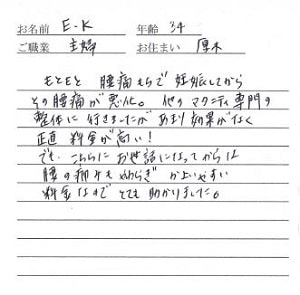 お名前 E.K 年齢 34
ご職業 主婦 お住まい 厚木
もともと 腰痛もちで 妊娠してから
その腰痛が悪化。他のマタニティ専門の
整体に行きましたが あまり効果がなく
正直 料金が高い！
でも、こちらにお世話になってからは
腰の痛みもやわらぎ かよいやすい
料金なので とても助かりました。